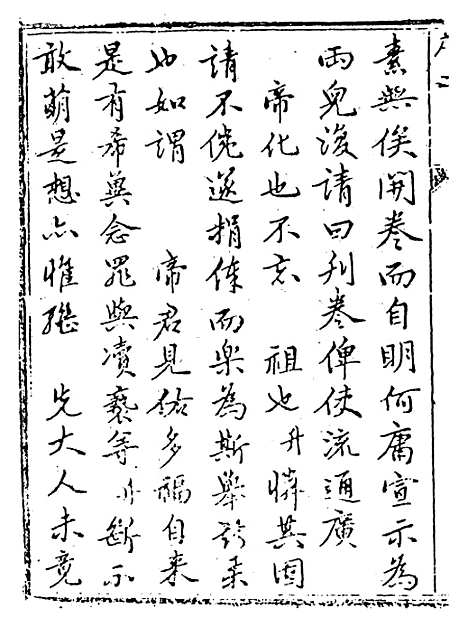 素與俟開卷而自明何庸宣示為
兩兒復請曰刋卷俾使流通廣
帝化也不忘 祖也廾憐其固
請不倦遂捐俸而樂為斯舉於梨
也如謂 帝君見佑多福自来
是有希冀念罪與凟褻等廾斷不
敢萌是想亦惟繼 先大人未竟